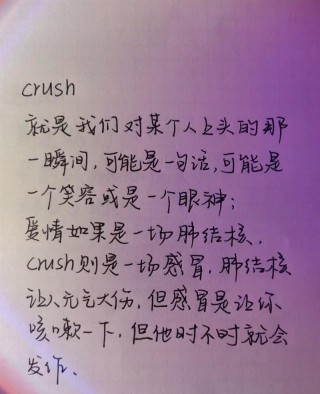 crush
就是我们对某个人上头的那
一瞬间,可能是一句话,可能是
一个笑容或是一个眼神;
爱情如果是一场肺结核.
crush则是一场感冒.肺结核
让人元气大伤,但感冒是让你
咳嗽一下,但他时不时就会
发作.